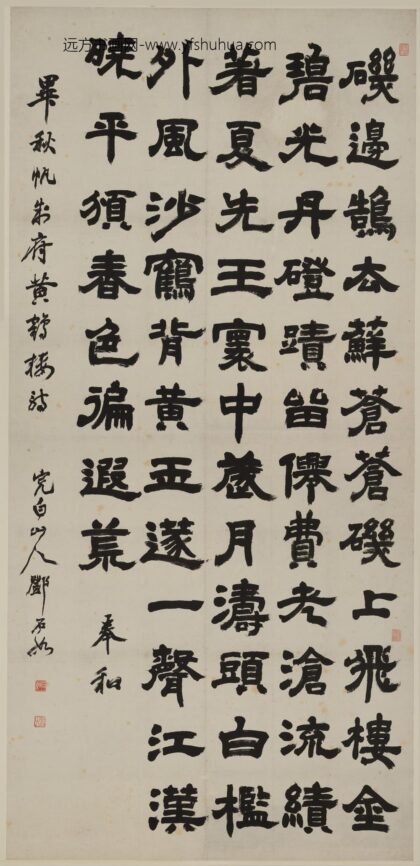 磯邊鵠去蘚蒼蒼磯上飛樓金
碧光丹磴蹟留僊費老滄流績
著夏先王寰中歲月濤頭白檻
外風沙鶴背黃玉篴一聲江漢
曉平頒春色徧遐荒 奉和
畢秋帆制府黃鶴楼詩 完白山人鄧石如
远方书画网-www.yfshuhua.com